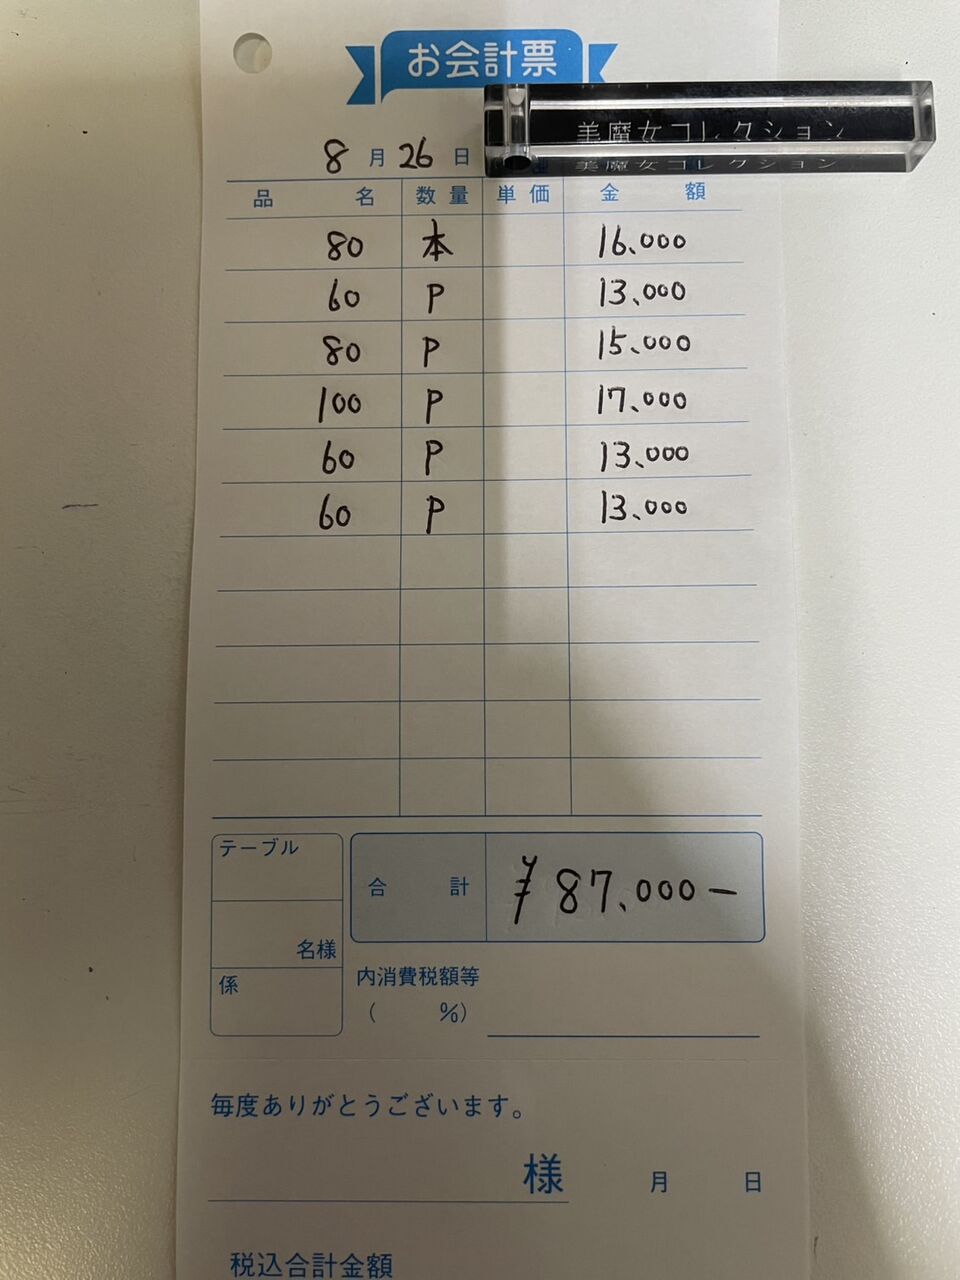 お会計票
美魔女コレクション
美魔女コレクション
8月26日
品名 数量 単価 金額
80 本 16.000
60 P 13.000
80 P 15.000
100 P 17.000
60 P 13.000
60 P 13.000
テーブル
名様
係
合計 ¥87.000-
内消費税額等
( %)
毎度ありがとうございます。
様 月 日
税込合計金額